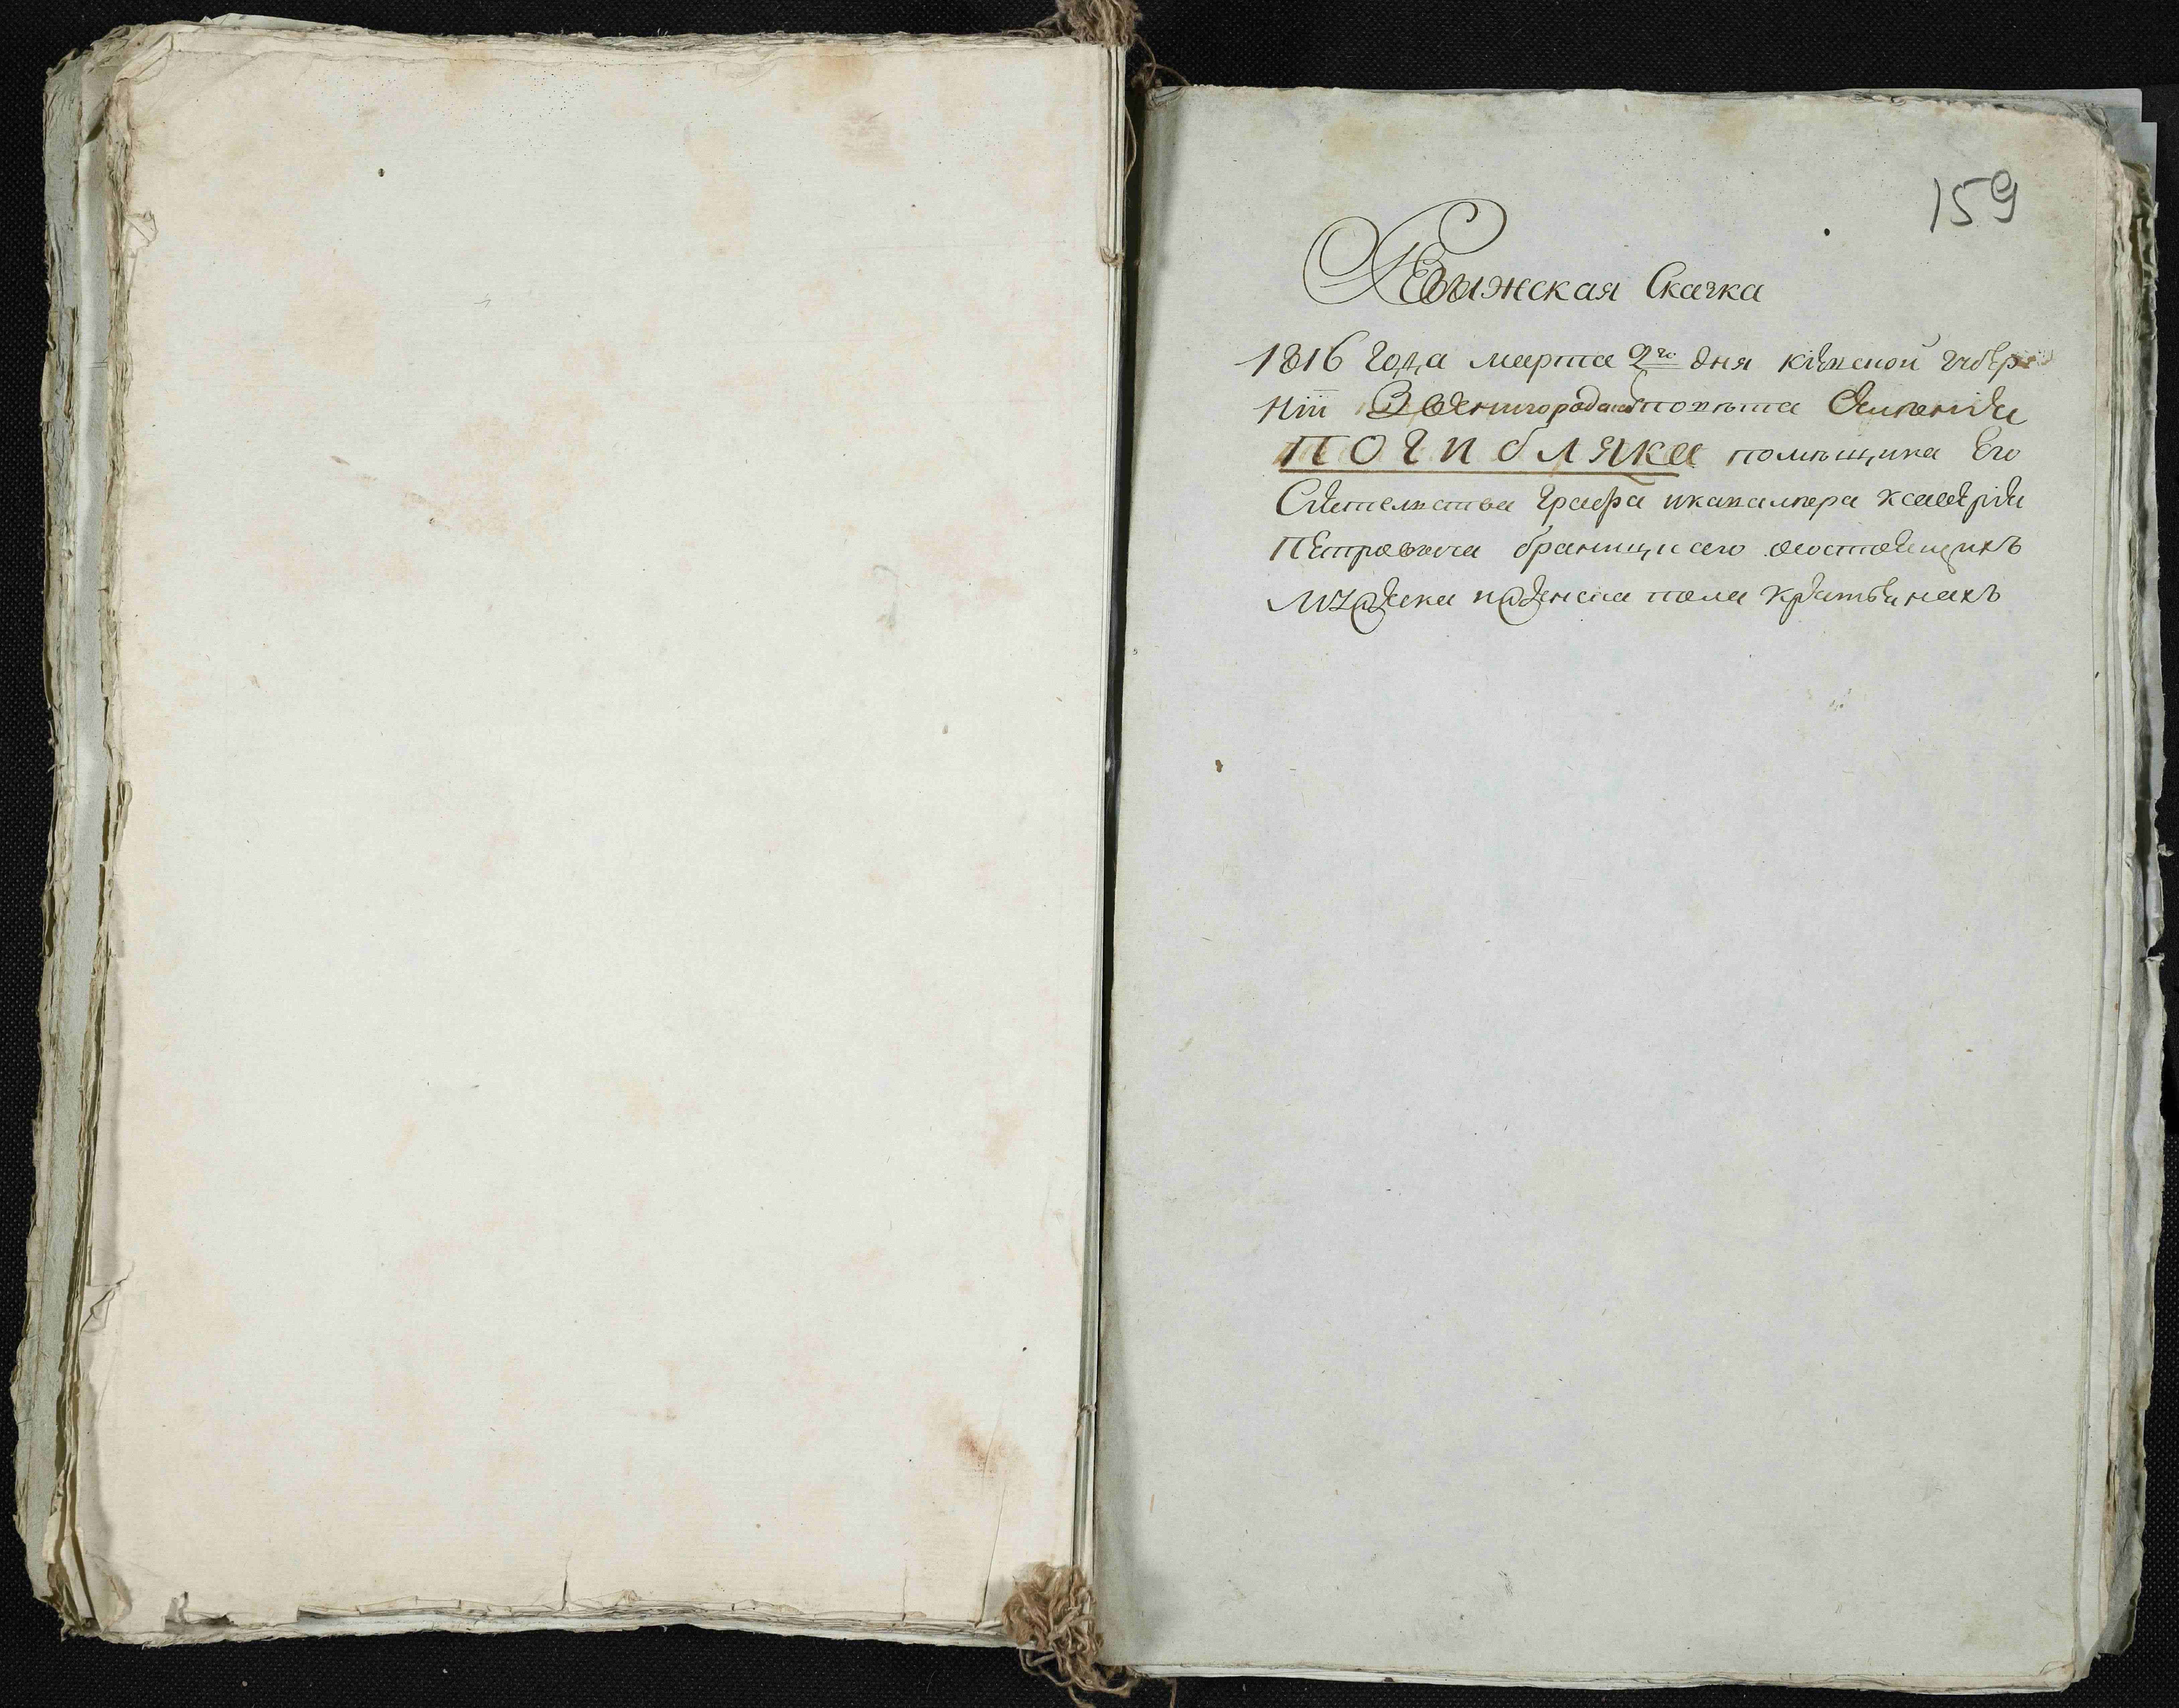 159
Ревижская Скачка
1816 Года марта 2го дня киевской губер
ніи Звенигородского повѣта Селенія
ПОЧИбЛЯКА помѣщика Его
Сіятельства Графа икавалера ксаверія
Петровича браницкаго осостоящихъ
мужеска иженска пола крестьянахъ